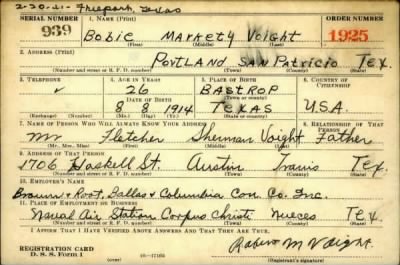 2-20-41- Freeport, Texas
SERIAL NUMBER 1. NAME (Print) ORDER NUMBER
939 BOBIE MARKETY VOIGHT 1925
(First) (Middle) (Last)
2. ADDRESS (Print)
PORTLAND SAN PATRICIO TEX.
(Number and street or R. F. D. number) (Town) (County) (State)
3. TELEPHONE 4. AGE IN YEARS 5. PLACE OF BIRTH 6. COUNTRY OF CITIZENSHIP
26 BASTROP
DATE OF BIRTH (Town or county)
8 8 1914 TEXAS U.S.A.
(Exchange) (Number) (Mo.) (Day) (Yr.) (State or country)
7. NAME OF PERSON WHO WILL ALWAYS KNOW YOUR ADDRESS 8. RELATIONSHIP OF THAT PERSON
Mr Fletcher Sherman Voight Father
(Mr., Mrs., Miss) (First) (Middle) (Last)
9. ADDRESS OF THAT PERSON
1706 Haskell St. Austin Travis Tex.
(Number and street or R. F. D. number) (Town) (County) (State)
10. EMPLOYER'S NAME
Brown & Root, Dallas & Columbia Con. Co. Inc.
11. PLACE OF EMPLOYMENT OR BUSINESS
Naval Air Station Corpus Christi Nueces Tex.
(Number and street or R. F. D. number) (Town) (County) (State)
I AFFIRM THAT I HAVE VERIFIED ABOVE ANSWERS AND THAT THEY ARE TRUE.
REGISTRATION CARD
D. S. S. FORM 1 M Voight
(Registrant's signature)